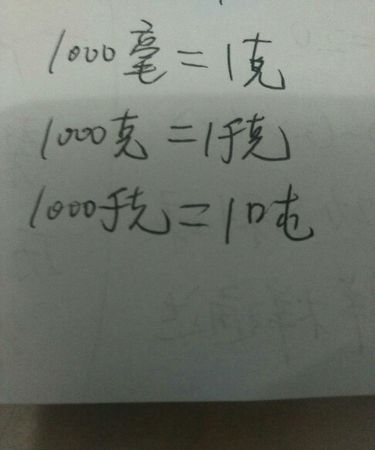 1000毫=1克
1000克=1千克
1000千克=1吨